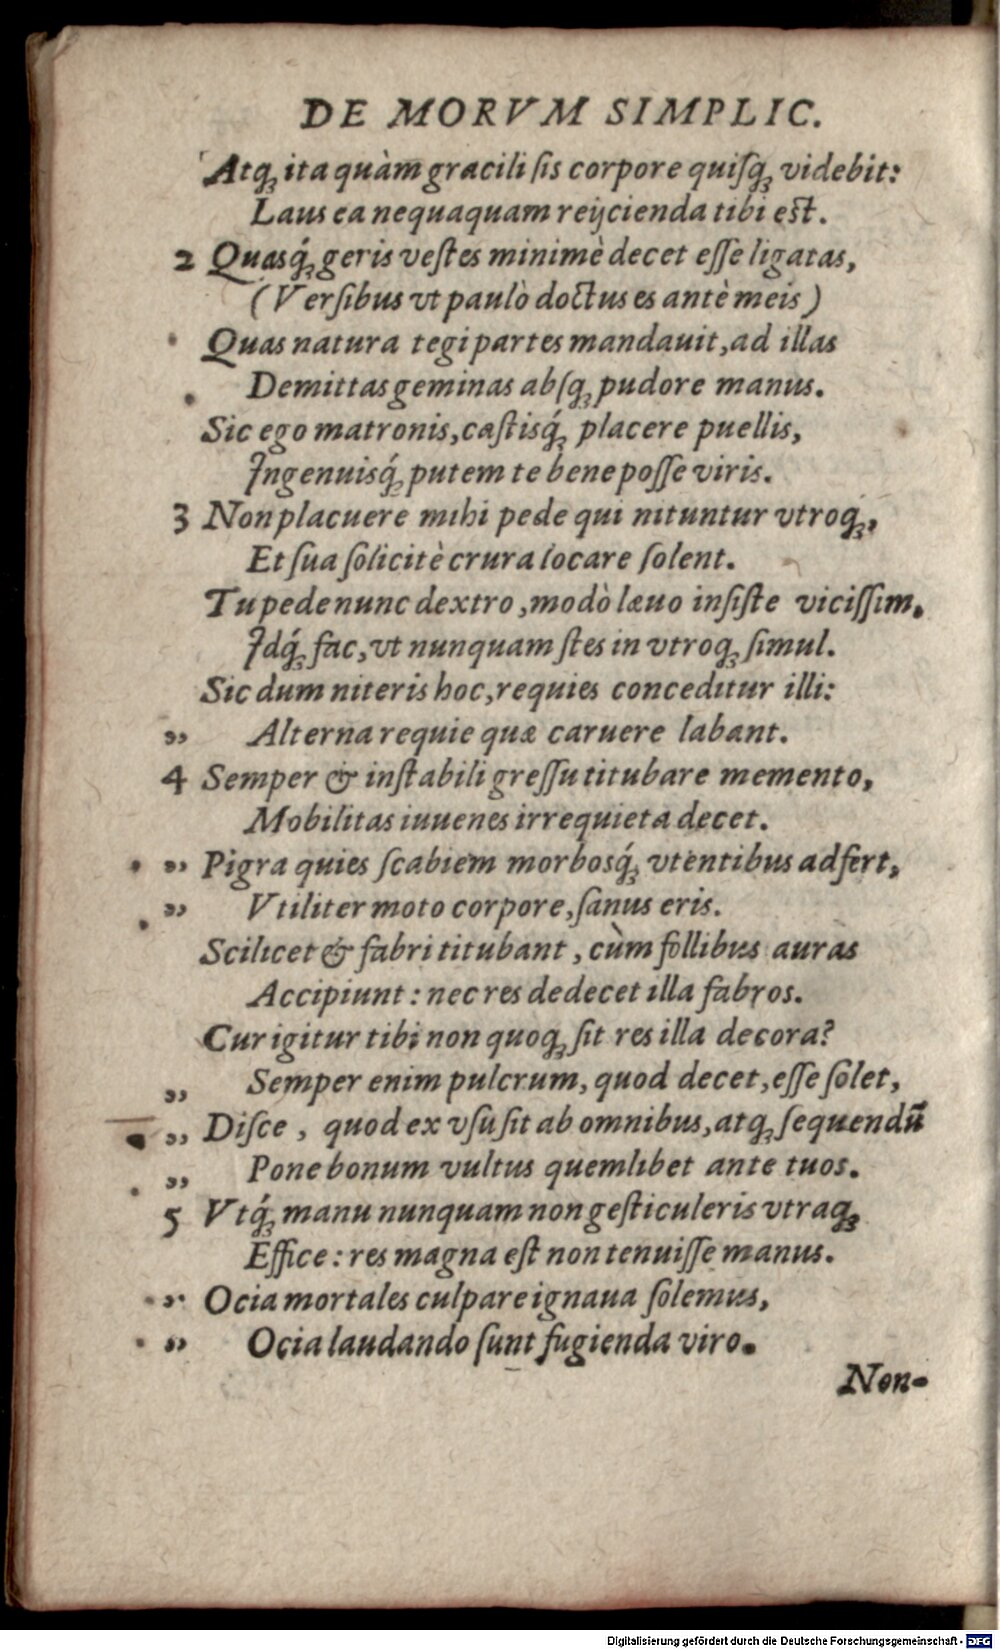 DE MORVM SIMPLIC.
Atq; ita quàm gracili ſis corpore quiſq; videbit:
Laus ea nequaquam reijcienda tibi eſt.
2 Quasq́; geris veſtes minimè decet eſſe ligatas,
(Verſibus vt paulò doctus es antè meis)
Quas natura tegi partes mandauit, ad illas
Demittas geminas abſq; pudore manus.
Sic ego matronis, caſtisq́; placere puellis,
Ingenuisq́; putem te bene poſſe viris.
3 Non placuere mihi pede qui nituntur vtroq;,
Et ſua ſolicitè crura locare ſolent.
Tu pede nunc dextro, modò læuo inſiſte viciſſim.
Idq́; fac, vt nunquam ſtes in vtroq; ſimul.
Sic dum niteris hoc, requies conceditur illi:
„ Alterna requie quæ caruere labant.
4 Semper & inſtabili greſſu titubare memento,
Mobilitas iuuenes irrequieta decet.
„ Pigra quies ſcabiem morbosq́; vtentibus adfert,
„ Vtiliter moto corpore, ſanus eris.
Scilicet & fabri titubant, cùm follibus auras
Accipiunt: nec res dedecet illa fabros.
Cur igitur tibi non quoq; ſit res illa decora?
„ Semper enim pulcrum, quod decet, eſſe ſolet,
„ Diſce, quod ex vſu ſit ab omnibus, atq; ſequendū
„ Pone bonum vultus quemlibet ante tuos.
5 Vtq́; manu nunquam non geſticuleris vtraq;
Effice: res magna eſt non tenuiſſe manus.
„ Ocia mortales culpare ignaua ſolemus,
„ Ocia laudando ſunt fugienda viro.
Non-
Digitalisierung gefördert durch die Deutsche Forschungsgemeinschaft - DFG